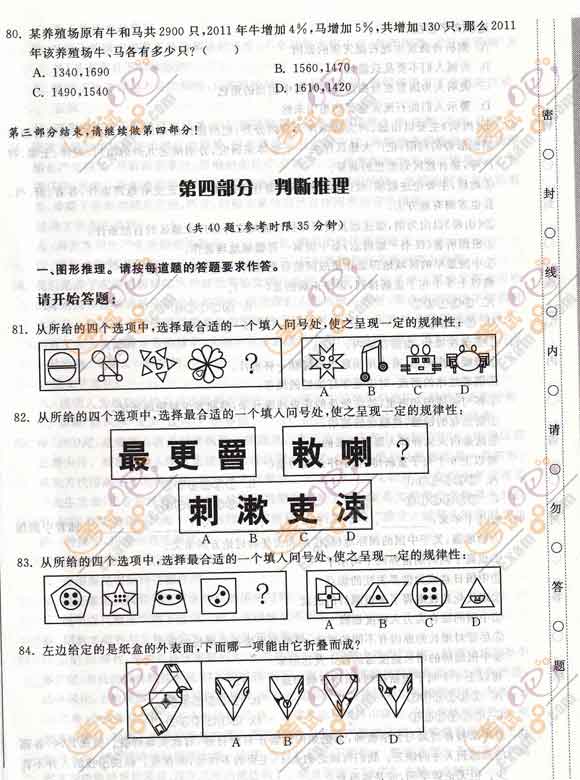 80. 某养殖场原有牛和马共2900只,2011年牛增加4%,马增加5%,共增加130只,那么2011
年该养殖场牛、马各有多少只?(　　)
A. 1340,1690　　B. 1560,1470
C. 1490,1540　　D. 1610,1420
第三部分结束,请继续做第四部分!
第四部分　判断推理
(共40题,参考时限35分钟)
一、图形推理。请按每道题的答题要求作答。
请开始答题:
81. 从所给的四个选项中,选择最合适的一个填入问号处,使之呈现一定的规律性:
?
A B C D
82. 从所给的四个选项中,选择最合适的一个填入问号处,使之呈现一定的规律性:
最 更 罾 敕 喇 ?
刺 漱 吏 涑
A B C D
83. 从所给的四个选项中,选择最合适的一个填入问号处,使之呈现一定的规律性:
?
A B C D
84. 左边给定的是纸盒的外表面,下面哪一项能由它折叠而成?
A B C D
密○封○线○内○请○勿○答○题
考试
Exam8.com